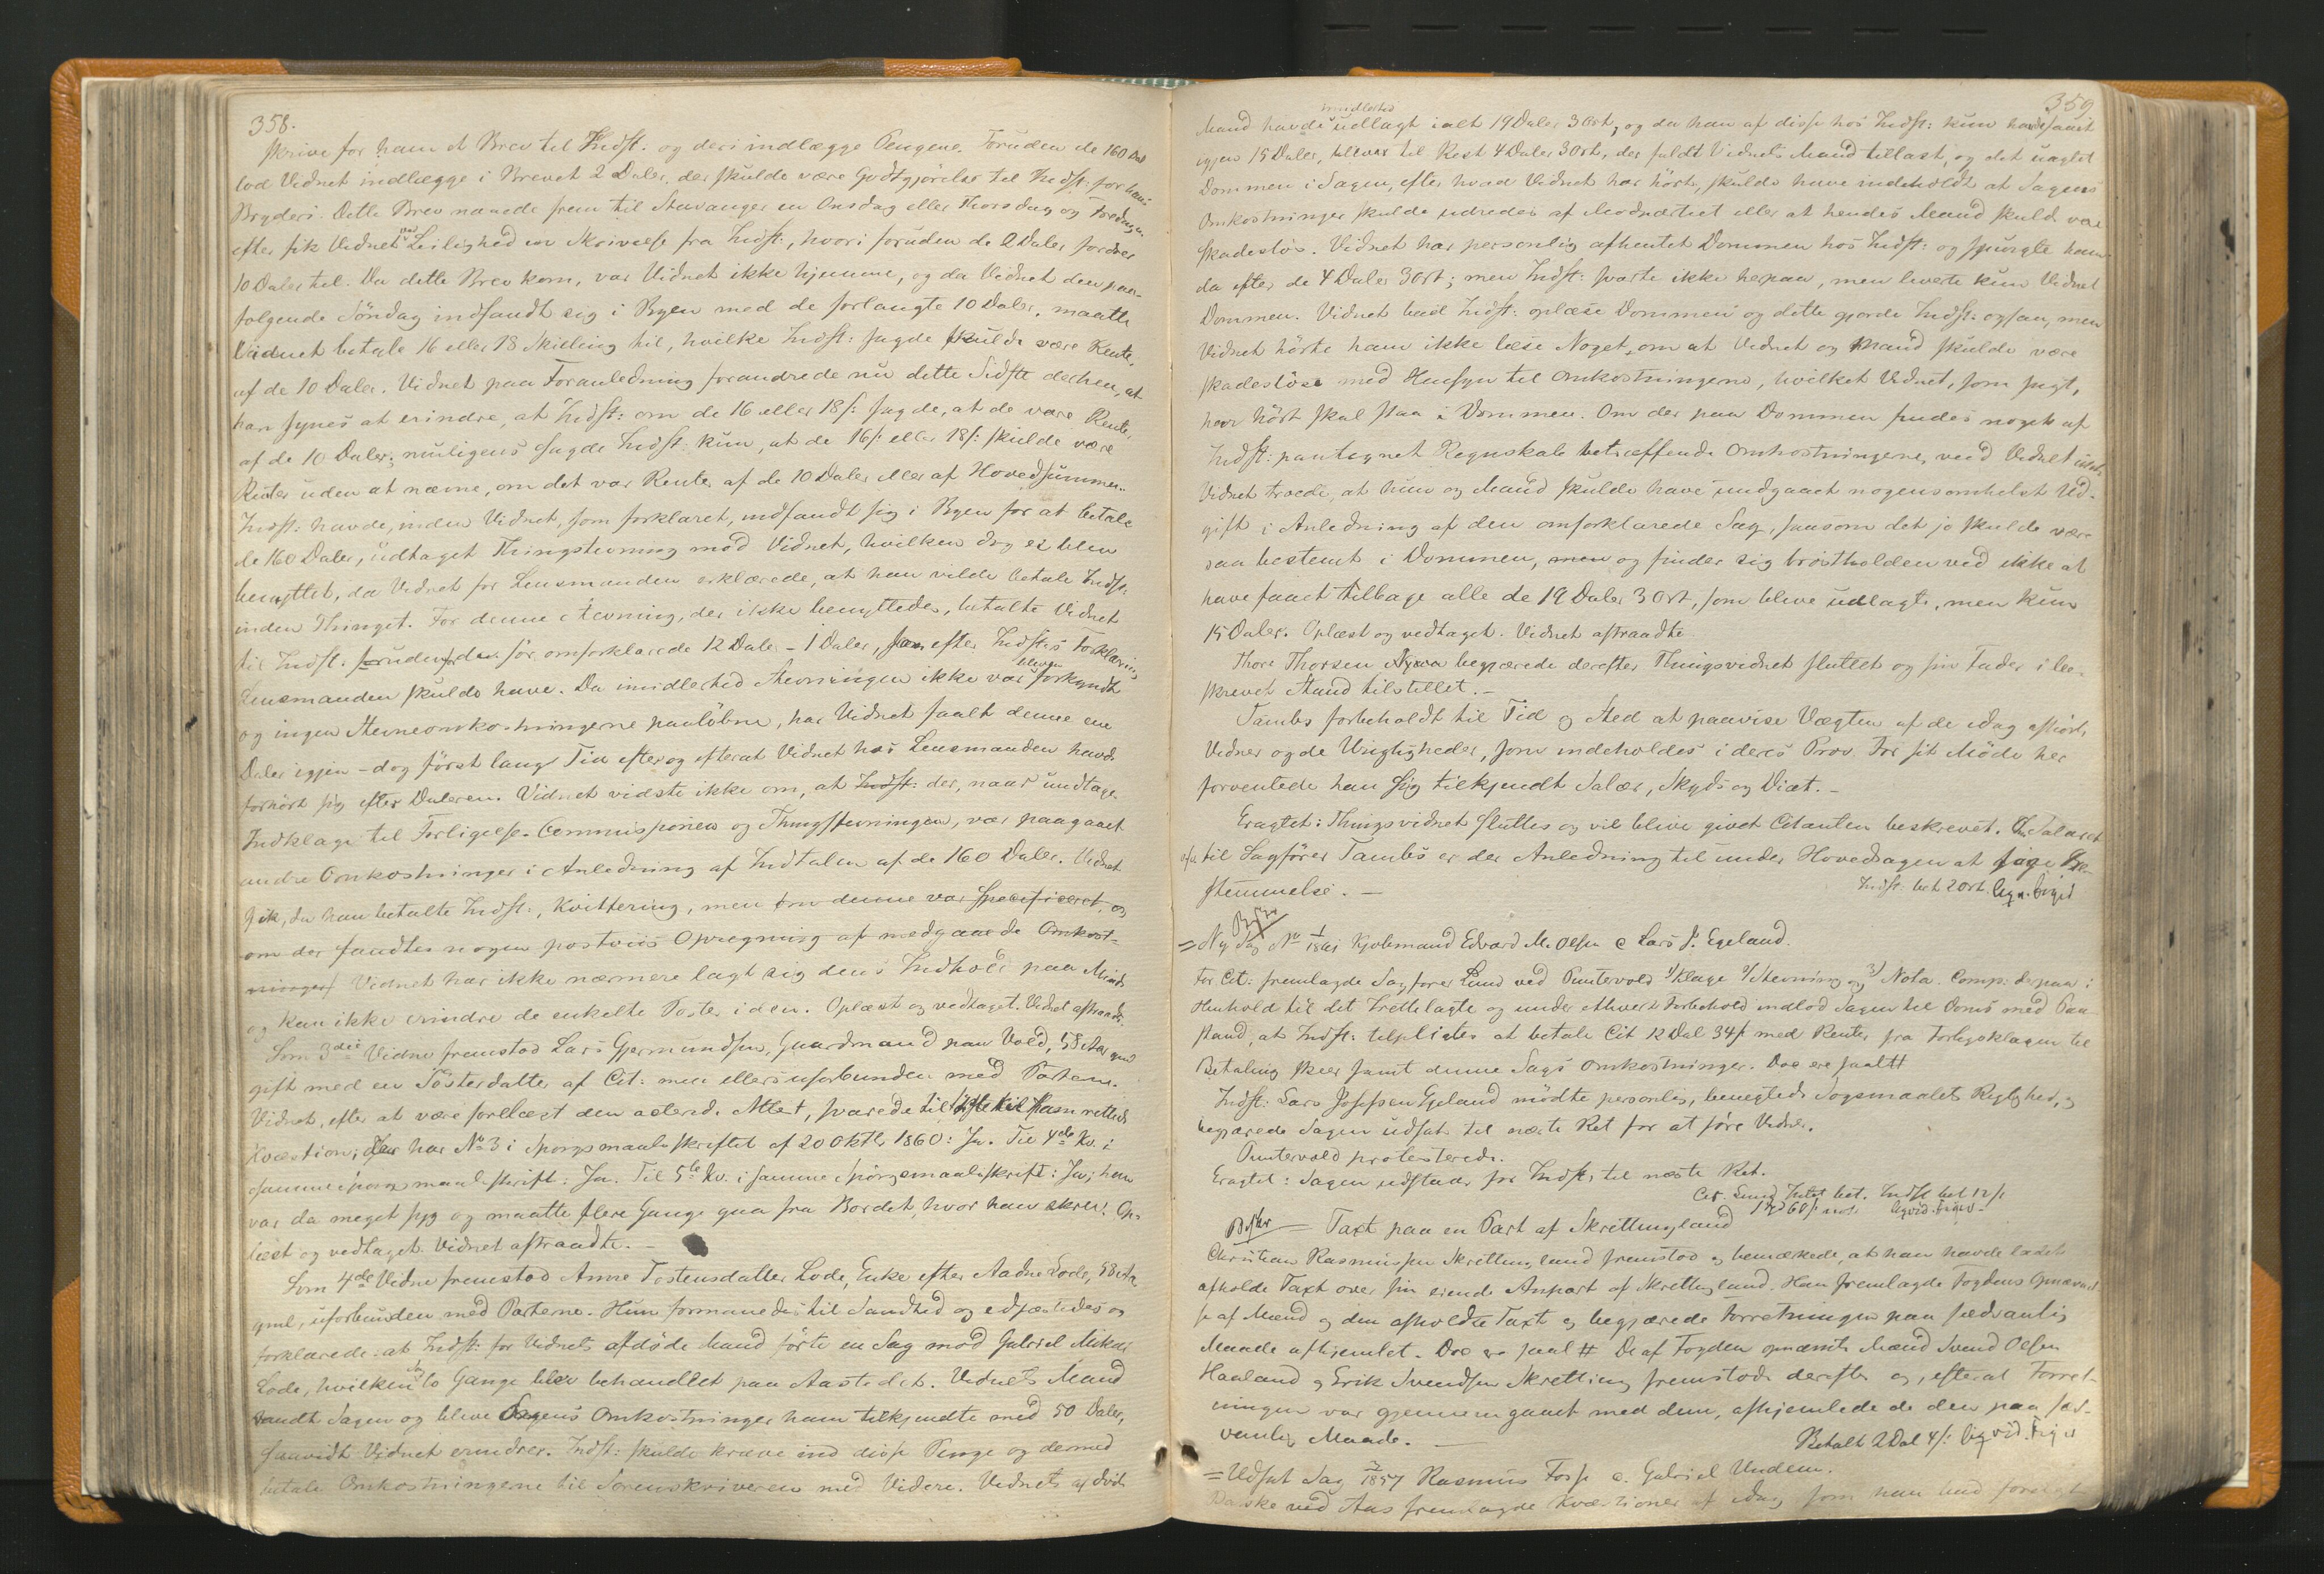 358.
skrive for ham et Brev til Indst. og deri indlægge Pengene. Foruden de 160 Dal
lod Vidnet indlægge i Brevet 2 Daler, der skulde være Godtgjörelse til Indst: for hans
Bryderi. Dette Brev naaede frem til Stavanger en Onsdag eller Thorsdag og Fredagen
efter fik Vidnet Leilighed en Skrivelse fra Indst:, hvori foruden de 2 Daler fordres
10 Daler til. Da dette Brev kom, var Vidnet ikke hjemme, og da Vidnet den paa-
følgende Söndag indfandt sig i Byen med de forlangte 10 Daler, maatte
Vidnet betale 16 eller 18 Skilling til, hvilke Indst: sagde skulde være Rente
af de 10 Daler. Vidnet paa Foranledning forandrede nu dette Sidste derhen, at
han synes at erindre, at Indst: om de 16 eller 18 s: sagde, at de være Renter
af de 10 Daler; muligens sagde Indst. kun, at de 16 s: eller 18 s: skulde være
Renter uden at nævne, om det var Renter af de 10 Daler eller af Hovedsummen.
Indst: havde, inden Vidnet, som forklaret, indfandt sig i Byen for at betale
de 160 Daler, udtaget Thingstevning mod Vidnet, hvilken dog ei blev
benyttet, da Vidnet for Lensmanden erklærede, at han vilde betale Indst:
inden Thinget. For denne Stevning, der ikke benyttedes, betalte Vidnet
til Indst: foruden de för omforklarede 12 Daler - 1 Daler, som efter Indst:s Forklaring
Lensmanden skulde have. Da imidlertid Stevningen ikke var bleven forkyndt
og ingen Stevneomkostningerne paalöbne, har Vidnet faaet denne ene
Daler igjen - dog först lang Tid efter og efterat Vidnet hos Lensmanden havde
forhört sig efter Daleren. Vidnet vidste ikke om, at Indst: der, naar undtages
Indklage til Forligelses-Commissionen og Thingstevningen, var paagaaet
andre Omkostninger i Anledning af Indtalen af de 160 Daler. Vidnet
fik, da han betalte Indst:, Kvittering, men om denne var specificeret, og
om der fandtes nogen postviis Opregning af medgaaede Omkost-
ninger, Vidnet har ikke nærmere lagt sig dens Indhold paa Minde
og kan ikke erindre de enkelte Poster i den. Oplæst og vedtaget. Vidnet aftraadte.
Som 3die Vidne fremstod Lars Gjermundsen, Gaardmand paa Vold, 58 Aar gml
gift med en Sösterdatter af Cit: men ellers uforbunden med Parterne.
Vidnet, efter at være forelæst den acterede Attest, svarede til 
Kvæstion, der har No 3 i Spörgsmaalsskriftet af 20 Oktbr 1860: Ja. Til 4de Kv. i
samme Spörgsmaalsskrift: Ja. Til 5te Kv. i samme Spörgsmaalsskrift: Ja; han
var da meget syg og maatte flere Gange gaa fra Bordet, hvor han skrev. Op-
læst og vedtaget. Vidnet aftraadte. -
Som 4de Vidne fremstod Anne Tostensdatter Lode, Enke efter Aadne Lode, 58 Aar
gml, uforbunden med Parterne. Hun formanedes til Sandhed og edfæstedes og
forklarede: at Indst: for Vidnets afdöde Mand förte en Sag mod Gabriel Mikal
Lode, hvilken to Gange blev behandlet paa Aastedet. Vidnets Mand
vandt Sagen og bleve Sagens Omkostninger ham tilkjendte med 50 Daler,
saavidt Vidnet erindrer. Indst: skulde kræve ind disse Penge og dermed
betale Omkostningerne til Sorenskriveren med Videre. Vidnets
359
Mand havde imidlertid udlagt ialt 19 Daler 3 Ort, og da han af disse hos Indst: kun havde faaet
igjen 15 Daler, blev til Rest 4 Daler 3 Ort, der faldt Vidnets Mand tillast, og det uagtet
Dommen i Sagen, efter hvad Vidnet har hört, skulde have indeholdt at Sagens
Omkostninger skulde udredes af Modpartiet eller at hendes Mand skuld være
skadeslös. Vidnet har personlig afhentet Dommen hos Indst: og spurgte ham
da efter de 4 Daler 3 Ort; men Indst: svarte ikke herpaa, men leverte kun Vidnet
Dommen. Vidnet bad Indst: oplæse Dommen og dette gjorde Indst: ogsaa, men
Vidnet hörte ham ikke læse Noget om at Vidnet og Mand skulde være
skadeslöse med Hensyn til Omkostningerne, hvilket Vidnet, som sagt,
har hört skal staa i Dommen. Om der paa Dommen findes noget af
Indst: paategnet Regnskab betræffende Omkostningerne, veed Vidnet ikke.
Vidnet troede, at hun og Mand skulde have undgaaet nogensomhelst Ud-
gift i Anledning af den omforklarede Sag, saasom det jo skulde være
saa bestemt i Dommen, men og finder sig bröstholden ved ikke at
have faaet tilbage alle de 19 Daler 3 Ort, som bleve udlagte, men kun
15 Daler. Oplæst og vedtaget. Vidnet aftraadte
Thore Thorsen begjærede derefter Thingsvidnet sluttet og sin Fader i be-
skrevet Stand tilstillet. -
Tambs forbeholdt til Tid og Sted at paavise Vægten af de idag afhörte
Vidner og de Urigtigheder, som indeholdes i deres Prov. For sit Möde her
forventede han sig tilkjendt Salær, Skyds og Diæt. -
Eragtet: Thingsvidnet sluttes og vil blive givet Citanten beskrevet. Om Salæret
til Sagförer Tambs er der Anledning til under Hovedsagen at söge Be-
stemmelse. -
Indst. bet 2 Ort.
= Ny Sag No 1/1861 Kjöbmand Edvard M. Olsen c Lars J. Egeland.
For Cit: fremlagde Sagförer Lund ved Puntervold 1) Klage 2) Stevning og 3) Nota. Comp: derpaa i
Henhold til det Irettelagte og under ethvert Forbehold indlod Sagen til Doms med Paa-
stand, at Indst: tilpligtes at betale Cit 12 Dal 34 s med Renter fra Forligsklagen til
Betaling skeer samt denne Sags Omkostninger. Doc ere saal#
Indst: Lars Josefsen Egeland mödte personlig, benegtede Sögsmaalets Rigtighed, og
begjærede Sagen udsat til næste Ret for at före Vidner.
Puntervold protesterede.
Eragtet: Sagen udstaar for Indst: til næste Ret.
Cit. Lund Intet bet. Indst bet 12 s
Taxt paa en Part af Skrettingland
Christian Rasmussen Skrettingland fremstod og bemærkede, at han havde ladet
afholde Taxt over sin eiende Anpart af Skrettingland. Han fremlagde Fogdens Opnævnel-
se af Mænd og den afholdte Taxt og begjærede Forretningen paa sædvanlig
Maade afhjemlet. Doc er saal # De af Fogden opnævnte Mænd Svend Olsen
Haaland og Erik Svendsen Skretting fremstode derefter og, efterat Forret-
ningen var gjennemgaaet med dem, afhjemlede de den paa sæd-
vanlig Maade. -
Betalt 2 Dal 4 s:
= Udsat Sag 1857 Rasmus Fosse c. Gabriel Undem.
ved Aas fremlagde Kvæstioner af idag som han bad forelagt